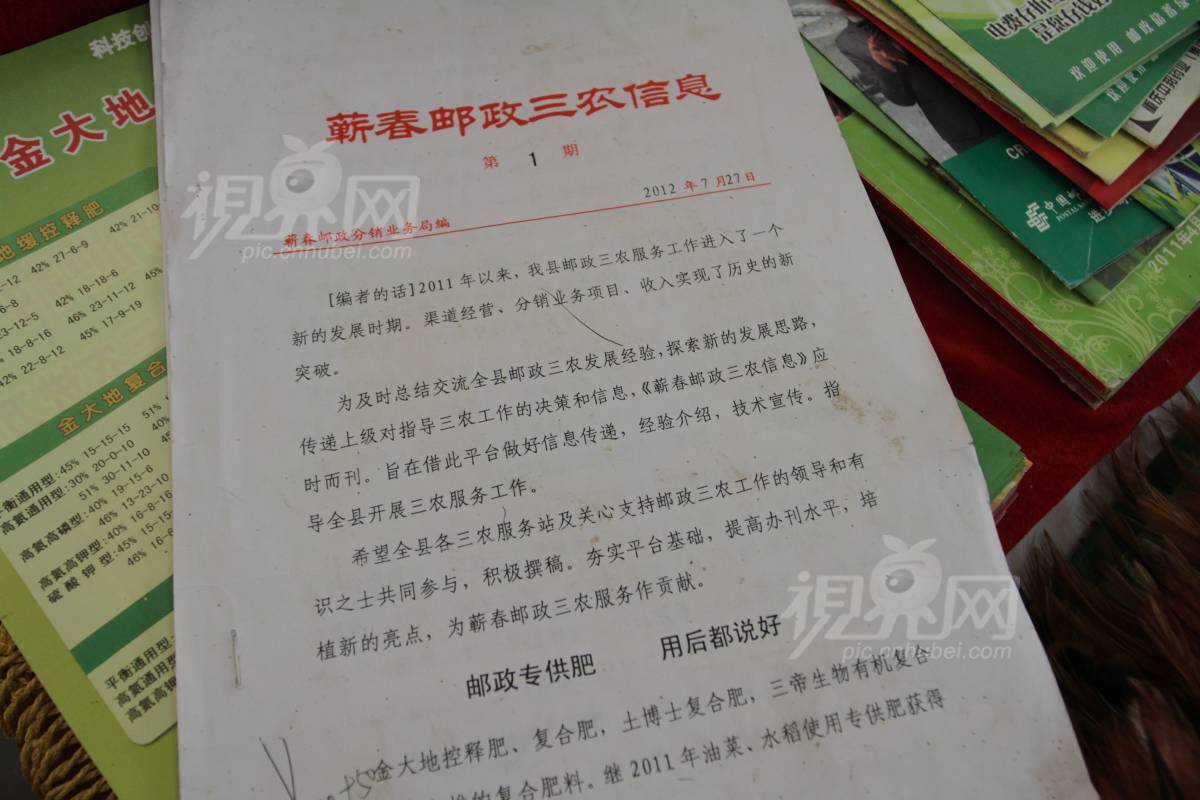 蕲春邮政三农信息
第 1 期
2012 年 7 月27 日
蕲春邮政分销业务局编
[编者的话]2011 年以来，我县邮政三农服务工作进入了一个
新的发展时期。渠道经营、分销业务项目、收入实现了历史的新
突破。
为及时总结交流全县邮政三农发展经验,探索新的发展思路，
传递上级对指导三农工作的决策和信息,《蕲春邮政三农信息》应
时而刊。旨在借此平台做好信息传递，经验介绍，技术宣传。指
导全县开展三农服务工作。
希望全县各三农服务站及关心支持邮政三农工作的领导和有
识之士共同参与，积极撰稿。夯实平台基础，提高办刊水平，培
植新的亮点，为蕲春邮政三农服务作贡献。
邮政专供肥 用后都说好
金大地控释肥、复合肥，土博士复合肥，三帝生物有机复合
的复合肥料。继 2011 年油菜、水稻使用专供肥获得
科技创
金大地
地缓控释肥
42% 21-10-
42% 27-6-9
42% 18-18-6
46% 23-11-12
45% 17-9-19
42% 22-8-12
金大地复合
平衡通用型:45% 15-15-15
高氮通用型:30% 20-0-10
51% 30-11-10
高氮高磷型:40% 19-15-6
46% 13-23-10
高氮高钾型:40% 16-8-16
硫酸钾型:45% 15-15-
46% 16-8
平衡通用型
高氮通用型
高氮高钾
欢迎使用 邮政储蓄
中国邮
POSTAL
2011年
視界网
pic.cnhubei.com
視界网
pic.cnhubei.com